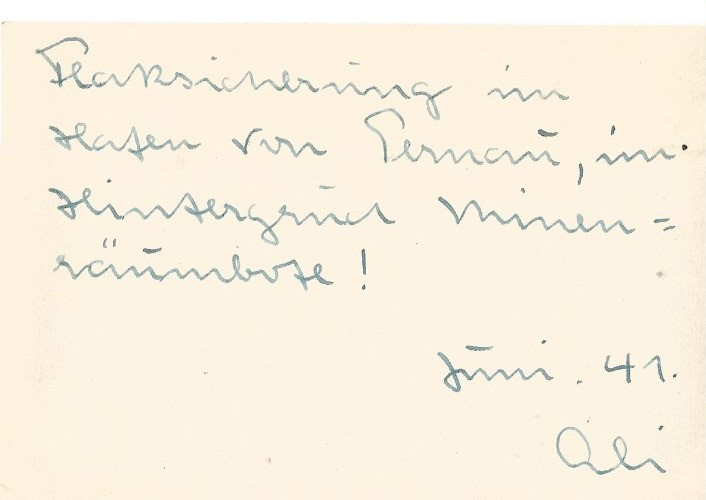 Flaksicherung im
Hafen von Pernau, im
Hintergrund Minen=
räumbote!
Juni. 41.